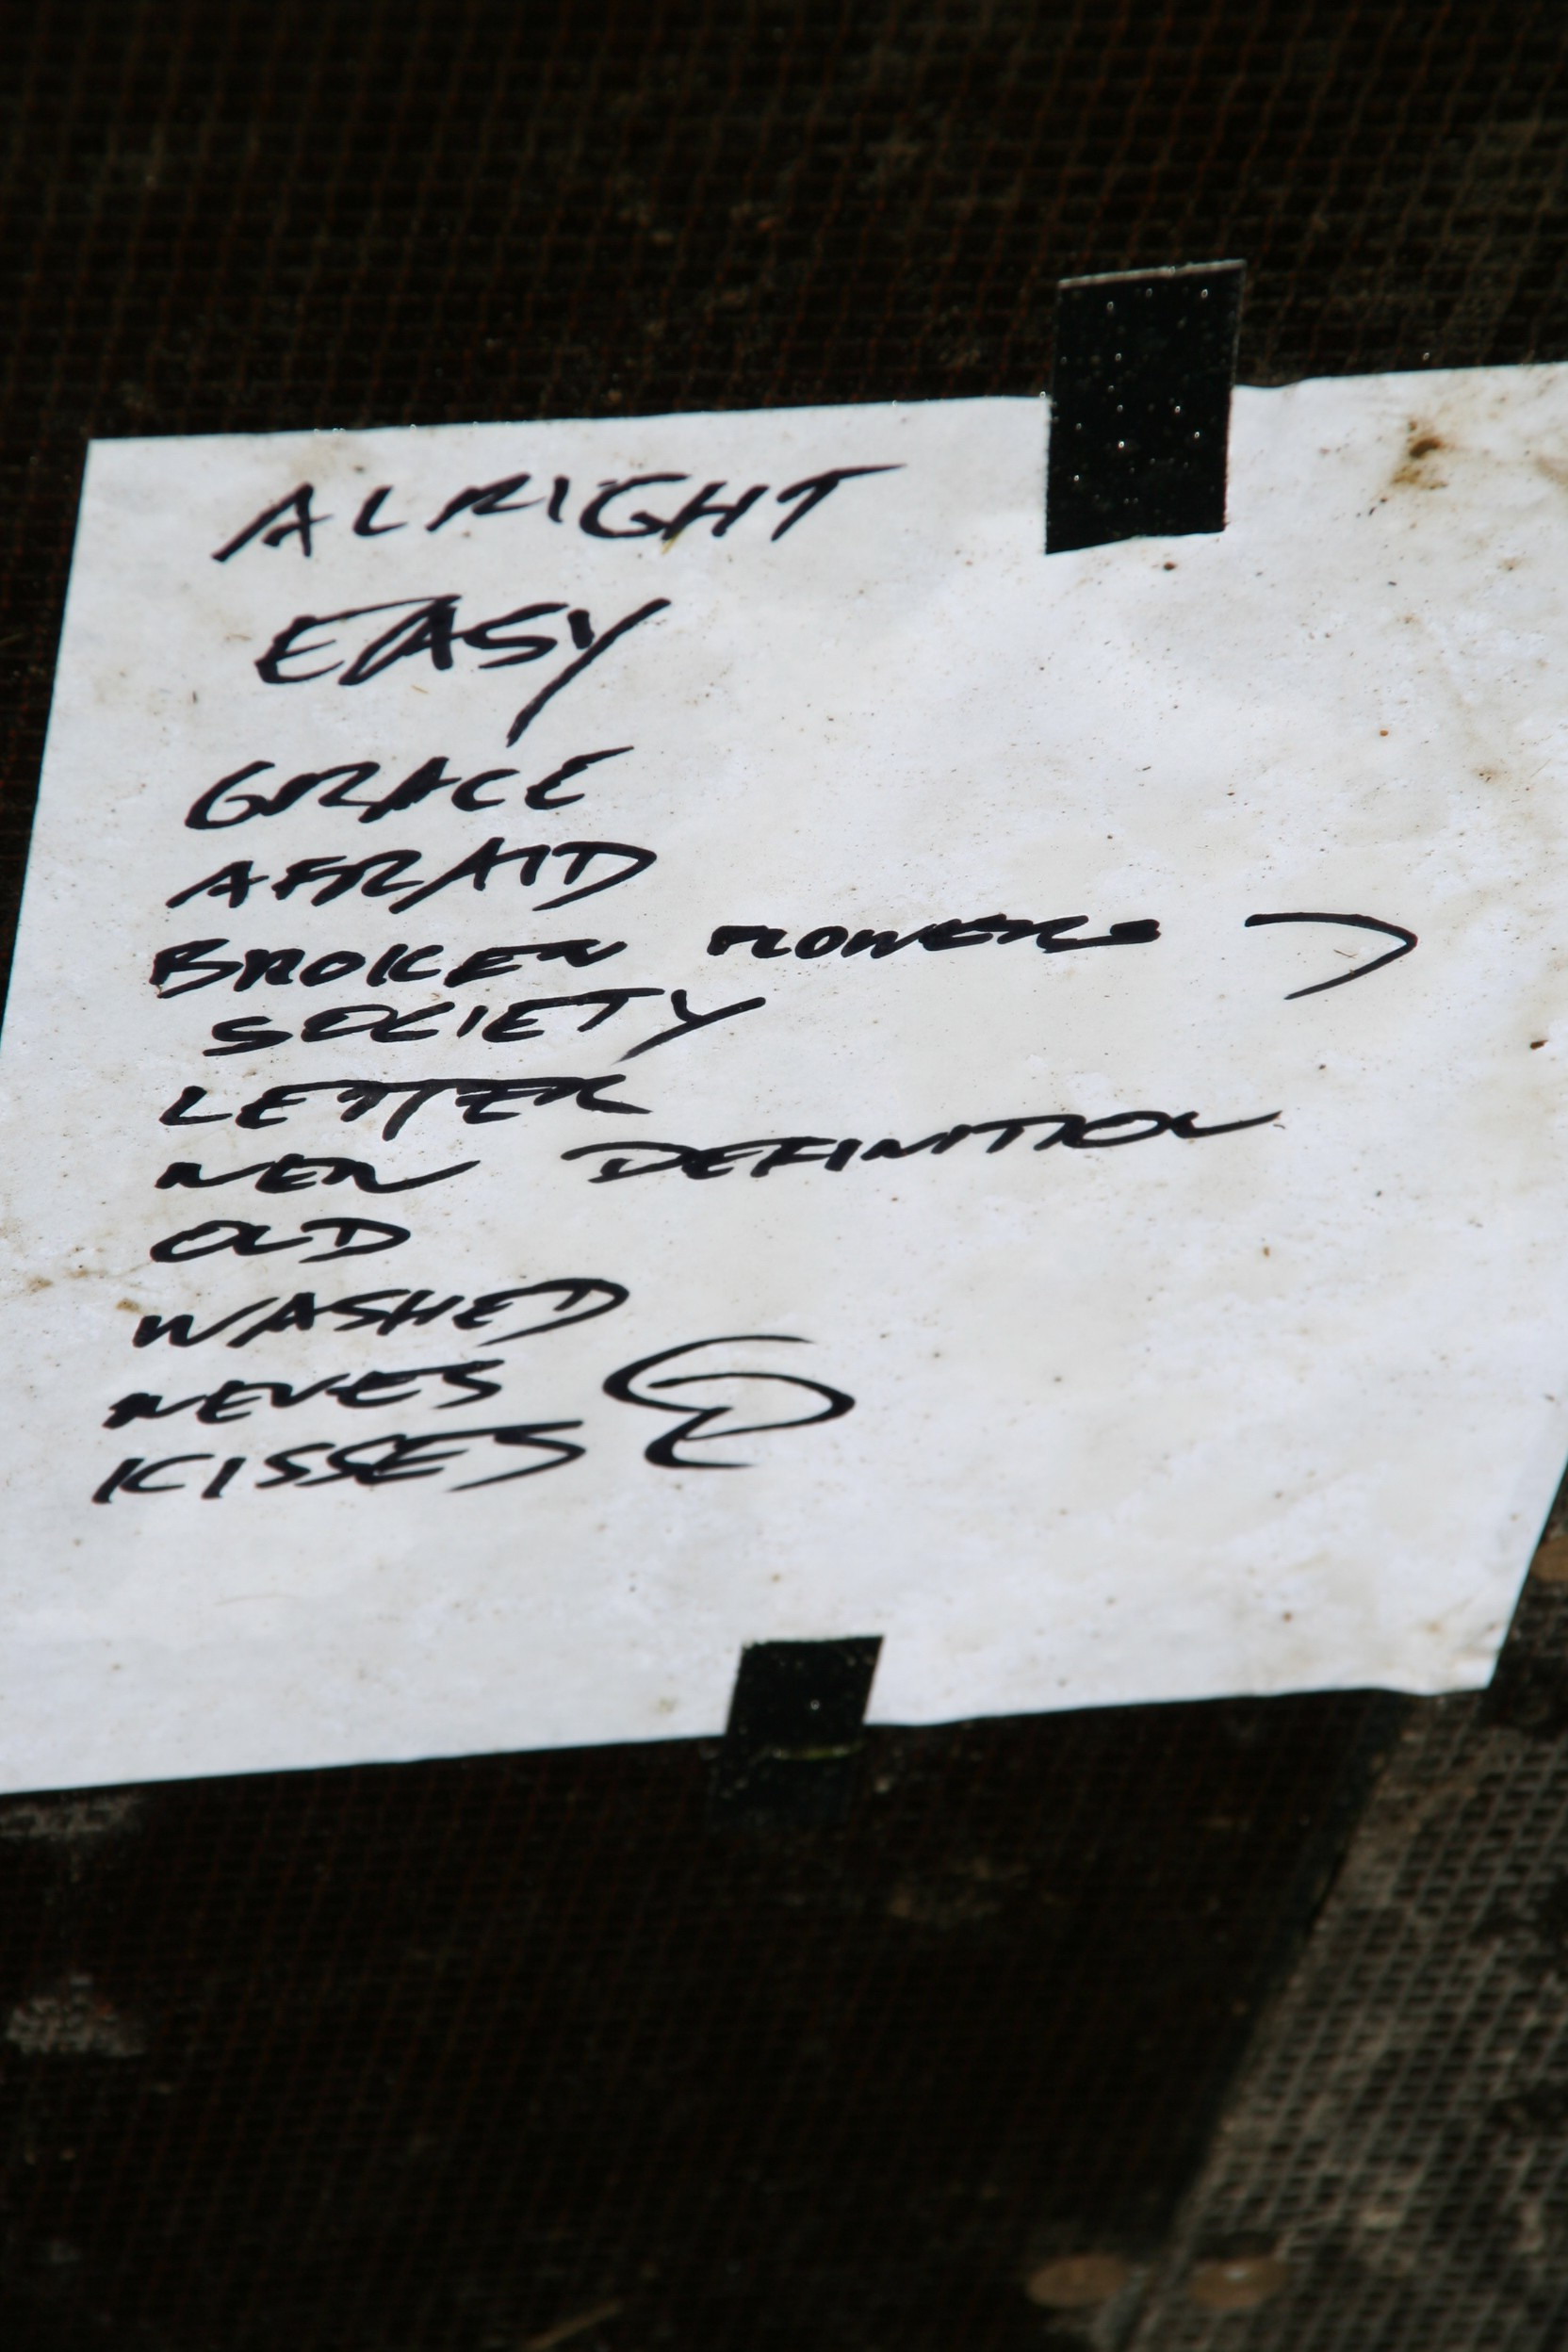 ALRIGHT
EASY
GRACE
AFRAID
BROKEN FLOWERS
SOCIETY
LETTER
NEW DEFINITION
OLD
WASHED
KISSES